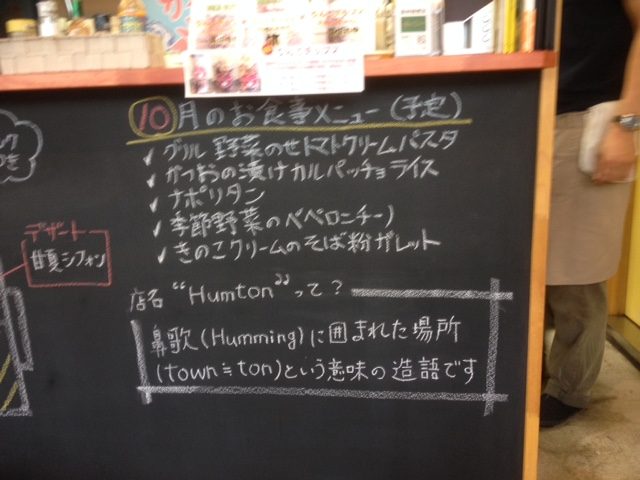 10月のお食事メニュー(予定)
✓ グリル 野菜のせトマトクリームパスタ
✓ かつおの漬けカルパッチョライス
✓ ナポリタン
✓ 季節野菜のペペロンチーノ
✓ きのこクリームのそば粉ガレット
デザート
シフォン
店名 "Humton" って?
鼻歌(Humming)に囲まれた場所
(town≒ton)という意味の造語です